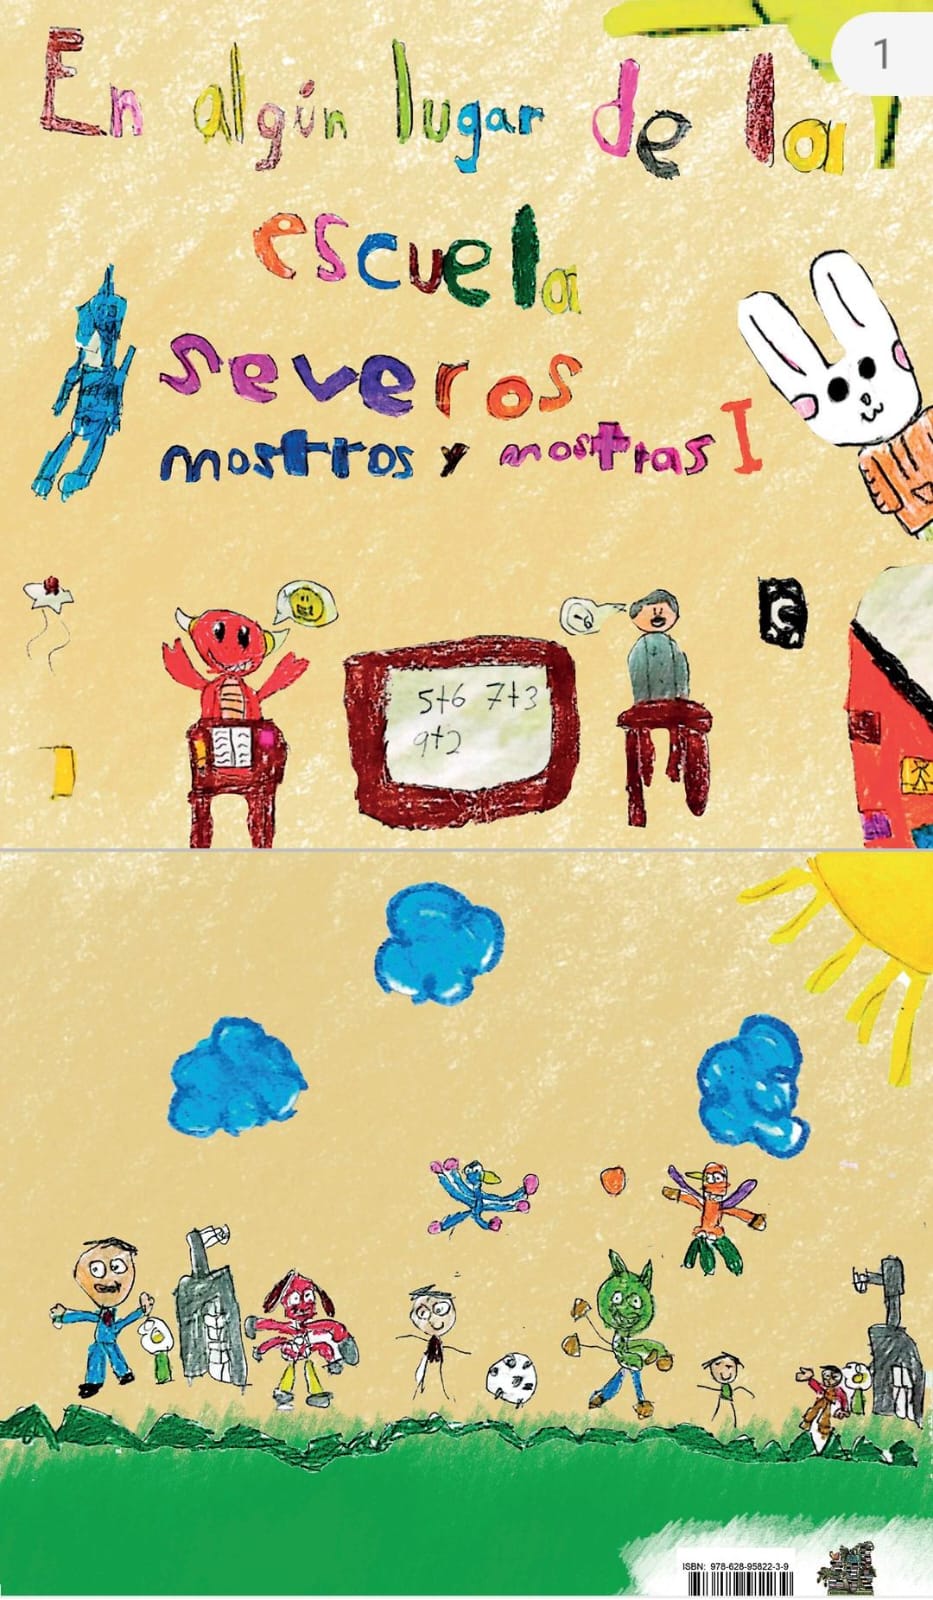 1
En algún lugar de la
escuela
severos
mostros y mostras I
5+6 7+3
9+2
ISBN: 978-628-95822-3-9